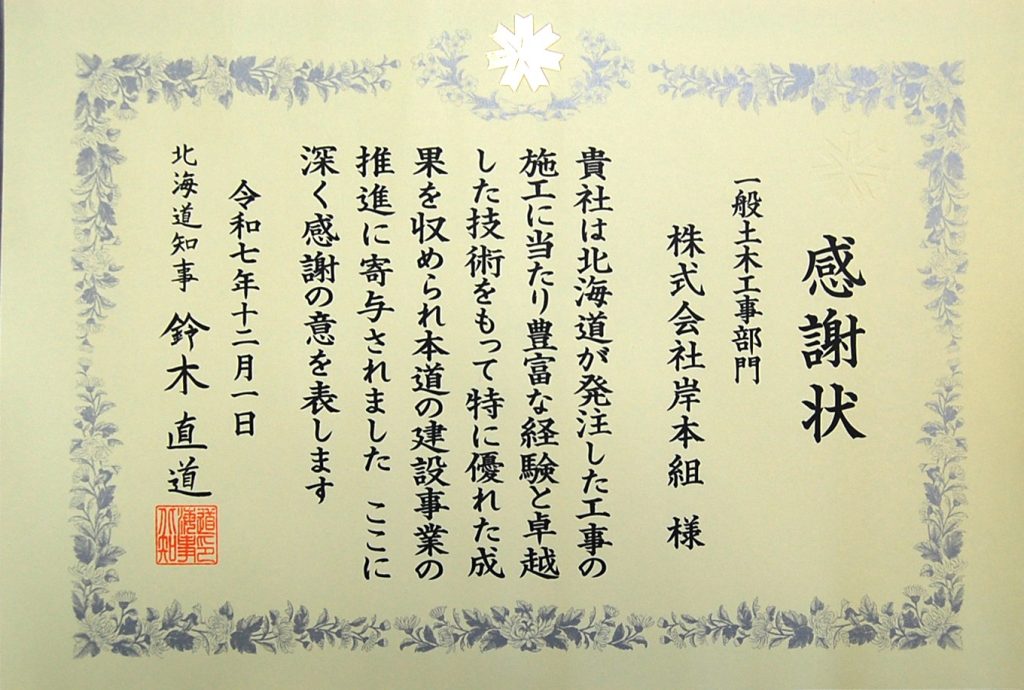 感謝状
一般土木工事部門
株式会社岸本組 様
貴社は北海道が発注した工事の
施工に当たり豊富な経験と卓越
した技術をもって特に優れた成
果を収められ本道の建設事業の
推進に寄与されました ここに
深く感謝の意を表します
令和七年十二月一日
北海道知事 鈴木直道